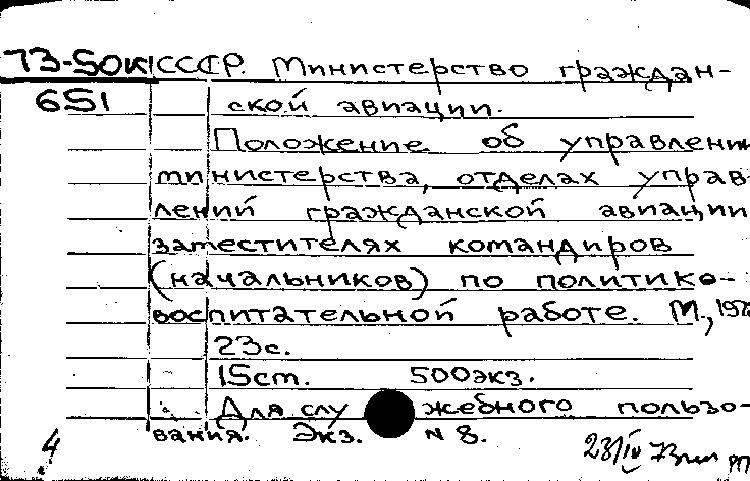 73-50к СССР. Министерство граждан-
651 ской авиации.
Положение об управлении
министерства, отделах управ-
лений гражданской авиации
заместителях командиров
(начальников) по политико-
воспитательной работе. М., 197
23с.
15см. 500экз.
Для служебного пользо-
вания. Экз. N 8.
4 23/IV 73